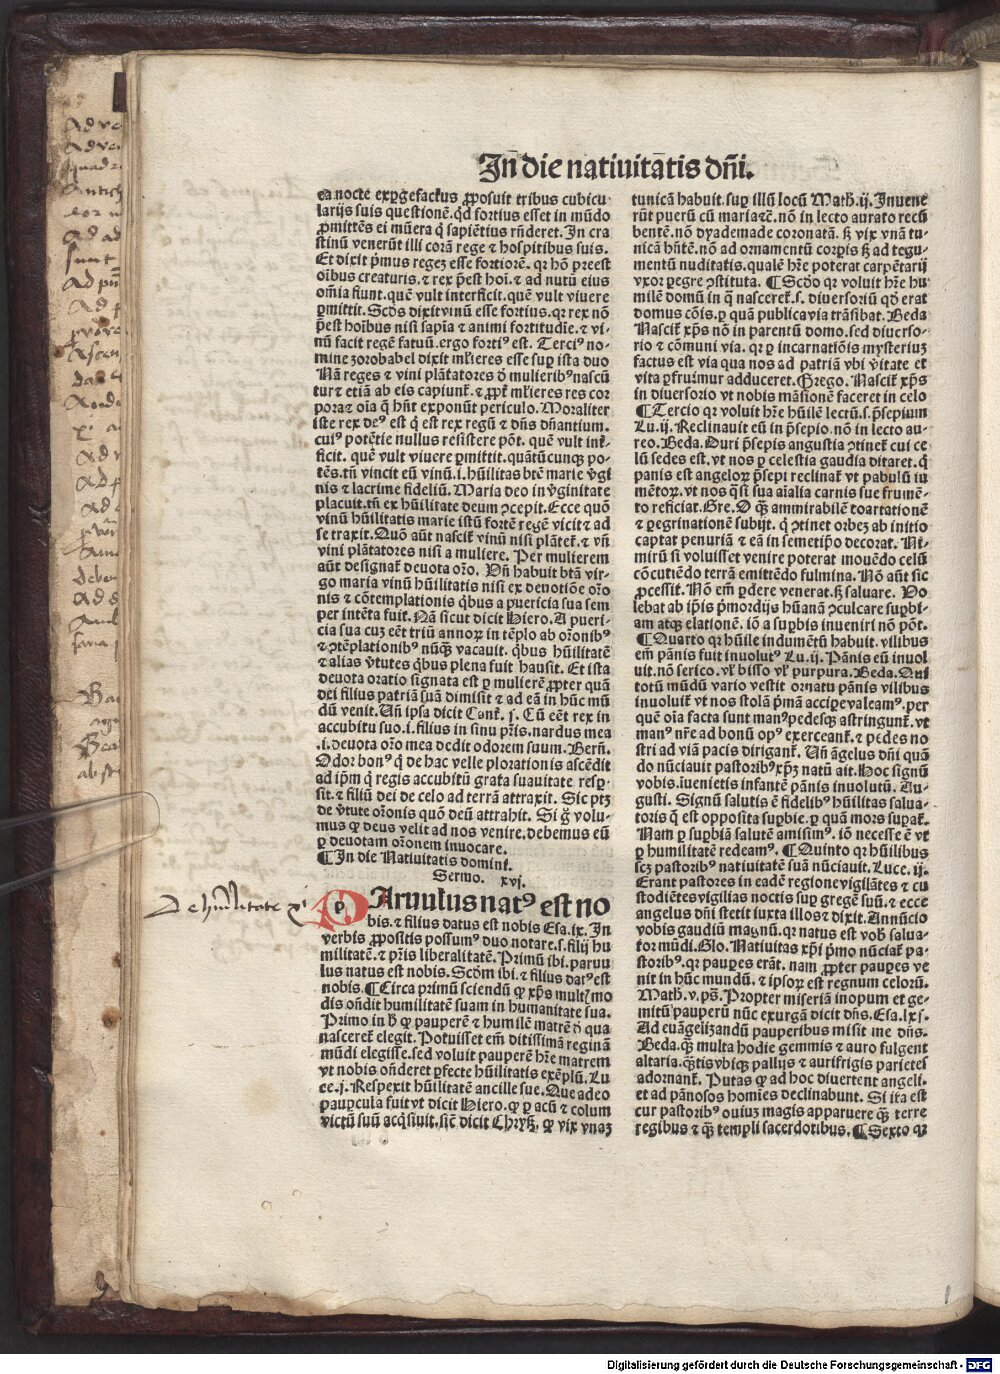 In die natiuitatis dñi.
ea nocte expgefactus ꝓposuit tribus cubicu
larijs suis questionẽ. qd fortius esset in mũdo
ꝓmittẽs ei mũera q̃ sapiẽtius rñderet. In cra
stinũ venerũt illi corã rege ⁊ hospitibus suis.
Et dixit pmus regeꝫ esse fortiorẽ. qꝛ hõ preest
oĩbus creaturis. ⁊ rex pest hoĩ. ⁊ ad nutũ eius
oĩa fiunt. quẽ vult interficit. quẽ vult viuere
pmittit. Scds dixit vinũ esse fortius. qꝛ rex nõ
pest hoĩbus nisi sapĩa ⁊ animi fortitudĩe. ⁊ vi-
nũ facit regẽ fatuũ. ergo fortiꝰ est. Terciꝰ no-
mine zorobabel dixit mlieres esse sup ista duo
Nã reges ⁊ vini plãtatores d mulieribꝰ nascũ
tur ⁊ etiã ab eis capiunt. ⁊ ꝓpt mlieres res cor
pora ⁊ oĩa q̃ hñt exponũt periculo. Moraliter
iste rex deꝰ est q̃ est rex regũ ⁊ dñs dñantium.
cuiꝰ potẽtie nullus resistere põt. quẽ vult int-
ficit. quẽ vult viuere pmittit. quãtũcunqꝫ po-
tẽs. tñ vincit eũ vinũ .i. hũilitas btẽ marie vgi
nis ⁊ lacrime fideliũ. Maria deo in vginitate
placuit. tñ ex hũilitate deum ꝯcepit. Ecce quõ
vinũ hũilitatis marie istũ fortẽ regẽ vicit ⁊ ad
se traxit. Quõ aũt nascit vinũ nisi plãtet. ⁊ vñ
vini plãtatores nisi a muliere. Per mulierem
aũt designat deuota orõ. Vñ habuit btã vir-
go maria vinũ hũilitatis nisi ex deuotiõe orõ
nis ⁊ cõtemplationis qbus a puericia sua sem
per intẽta fuit. Nã sicut dicit Hiero. A pueri-
cia sua cuꝫ eẽt triũ annoꝝ in tẽplo ab orõnibꝰ
⁊ ꝯtẽplationibꝰ nũqꝫ vacauit. qbus hũilitatẽ
⁊ alias vtutes qbus plena fuit hausit. Et ista
deuota oratio signata est p mulierẽ ꝓpter quã
dei filius patriã suã dimisit ⁊ ad eã in hũc mũ
dũ venit. Uñ ipsa dicit Cant. j. Cũ eẽt rex in
accubitu suo .i. filius in sinu pris. nardus mea
.i. deuota orõ mea dedit odorem suum. Berñ.
Odor bonꝰ q̃ de hac velle plorationis ascẽdit
ad ipm q̃ regis accubitũ grata suauitate resp-
sit. ⁊ filiũ dei de celo ad terrã attraxit. Sic ptꝫ
de vtute orõnis quõ deũ attrahit. Si g̃ volu-
mus ꝙ deus velit ad nos venire. debemus eũ
p deuotam orõnem inuocare.
¶ In die Natiuitatis domini.
Sermo. xvj.
De humilitate xpi
PAruulus natꝰ est no
bis. ⁊ filius datus est nobis Esa. ix. In
verbis ꝓpositis possumꝰ duo notare. s. filij hu
militatẽ. ⁊ pris liberalitatẽ. Primũ ibi. paruu
lus natus est nobis. Scdm ibi. ⁊ filius datꝰ est
nobis. ¶ Circa primũ sciendũ ꝙ xps multꝫ mo
dis oñdit humilitatẽ suam in humanitate sua.
Primo in h ꝙ pauperẽ ⁊ humilẽ matrẽ d qua
nasceret elegit. Potuisset em̃ ditissimã reginã
mũdi elegisse. sed voluit pauperẽ hre matrem
vt nobis oñderet pfecte hũilitatis exẽplũ. Lu
ce. j. Respexit hũilitatẽ ancille sue. Que adeo
paupcula fuit vt dicit Hiero. ꝙ p acũ ⁊ colum
victũ suũ acq̃siuit. sic dicit Chryß. ꝙ vix vnaꝫ
tunicã habuit. sup illũ locũ Math. ij. Inuene
rũt puerũ cũ maria ⁊c̃. nõ in lecto aurato recũ
bentẽ. nõ dyademade coronatã. ß vix vnã tu-
nicã hñtẽ. nõ ad ornamentũ corpis ß ad tegu-
mentũ nuditatis. qualẽ hre poterat carpẽtarij
vxor pegre ꝯstituta. ¶ Scdo qꝛ voluit hre hu
milẽ domũ in q̃ nasceret. s. diuersoriũ qd erat
domus cõis. p quã publica via trãsibat. Beda
Nascit xps nõ in parentũ domo. sed diuerso-
rio ⁊ cõmuni via. qꝛ p incarnatiõis mysteriuꝫ
factus est via qua nos ad patriã vbi vitate et
vita pfruimur adduceret. Grego. Nascit xps
in diuersorio vt nobis mãsionẽ faceret in celo
¶ Tercio qꝛ voluit hre hũilẽ lectũ. s. psepium
Lu. ij. Reclinauit eũ in psepio. nõ in lecto au-
reo. Beda. Duri psepis angustia ꝯtinet cui ce
lũ sedes est. vt nos p celestia gaudia ditaret. q̃
panis est angeloꝝ psepi reclinat vt pabulũ iu
mẽtoꝝ. vt nos q̃si sua aĩalia carnis sue frumẽ-
to reficiat. Gre. O q̃ ammirabilẽ coartationẽ
⁊ pegrinationẽ subijt. q̃ ꝯtinet orbeꝫ ab initio
captat penuriã ⁊ eã in semetipo decorat. Ni-
mirũ si voluisset venire poterat mouẽdo celũ
cõcutiẽdo terrã emittẽdo fulmina. Nõ aũt sic
ꝓcessit. Nõ em̃ pdere venerat. ß saluare. Vo
lebat ab ipis pmordijs hũanã ꝯculcare supbi-
am atqꝫ elationẽ. iõ a supbis inueniri nõ põt.
¶ Quarto qꝛ hũile indumẽtũ habuit. vilibus
em̃ pãnis fuit inuolutꝰ Lu. ij. Pãnis eũ inuol
uit. nõ serico. vl bisso vl purpura. Beda. Qui
totũ mũdũ vario vestit ornatu pãnis vilibus
inuoluit vt nos stolã pmã accipe valeamꝰ. per
quẽ oĩa facta sunt manꝰ pedesqꝫ astringunt. vt
manꝰ nre ad bonũ opꝰ exerceant. ⁊ pedes no
stri ad viã pacis dirigant. Uñ ãgelus dñi quã
do nũciauit pastoribꝰ xpꝫ natũ ait. Hoc signũ
vobis. iuenietis infantẽ pãnis inuolutũ. Au-
gusti. Signũ salutis ẽ fidelibꝰ hũilitas salua-
toris q̃ est opposita supbie. p quã mors supat.
Nam p supbiã salutẽ amisimꝰ. iõ necesse ẽ vt
p humilitatẽ redeamꝰ. ¶ Quinto qꝛ hũilibus
scꝫ pastoribꝰ natiuitatẽ suã nũciauit. Luce. ij.
Erant pastores in eadẽ regione vigilãtes ⁊ cu
stodiẽtes vigilias noctis sup gregẽ suũ. ⁊ ecce
angelus dñi stetit iuxta illos ⁊ dixit. Annũcio
vobis gaudiũ magnũ. qꝛ natus est vob salua-
tor mũdi. Glo. Natiuitas xpi pmo nũciat pa-
storibꝰ. qꝛ paupes erãt. nam ꝓpter paupes ve
nit in hũc mundũ. ⁊ ipsoꝝ est regnum celorũ.
Math. v. ps. Propter miseriã inopum et ge-
mitũ pauperũ nũc exurgã dicit dñs. Esa. lxj.
Ad euãgelizandũ pauperibus misit me dñs.
Beda. q̃ multa hodie gemmis ⁊ auro fulgent
altaria. q̃tis vbiqꝫ pallijs ⁊ aurifrigis parietes
adornant. Putas ꝙ ad hoc diuertent angeli.
et ad pãnosos homĩes declinabunt. Si ita est
cur pastoribꝰ ouiuꝫ magis apparuere q̃ terre
regibus ⁊ q̃ templi sacerdotibus. ¶ Sexto qꝛ
Digitalisierung gefördert durch die Deutsche Forschungsgemeinschaft - DFG